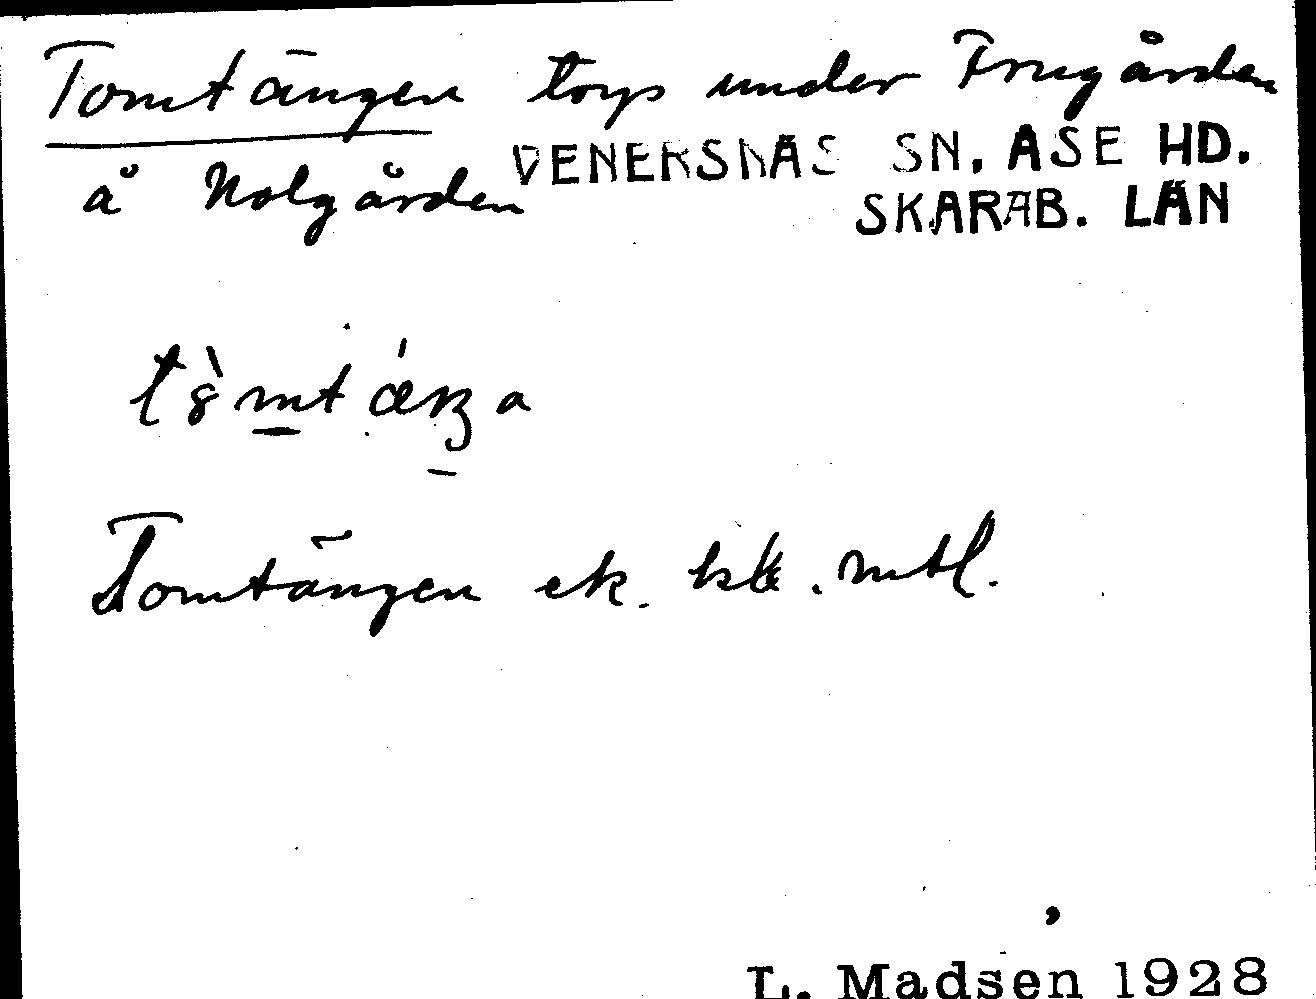 Tomtängen torp under Frugården
VENERSNÄS SN. ÅSE HD.
å Nolgården
SKARAB. LÄN
Tomtängen ek. mtl.
L. Madsen 1928